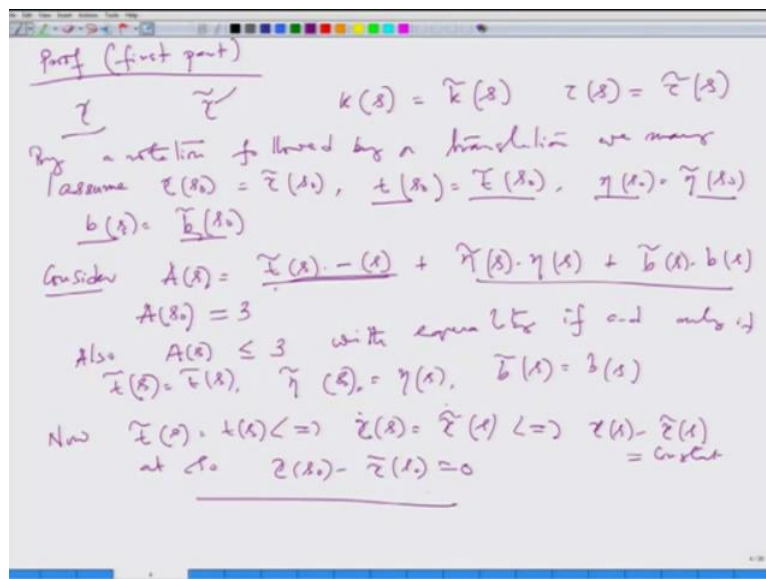 Proof (first part)
γ γ̃ k(s) = k̃(s) τ(s) = τ̃(s)
By a rotation followed by a translation we may
assume γ(s₀) = γ̃(s₀), t(s₀) = t̃(s₀), η(s₀) = η̃(s₀)
b(s) = b̃(s₀)
Consider A(s) = t̃(s) · (s) + η̃(s) · η(s) + b̃(s) · b(s)
A(s₀) = 3
Also A(s) ≤ 3 with equality if and only if
t̃(s) = t(s), η̃(s) = η(s), b̃(s) = b(s)
Now t̃(s) = t(s) <=> γ̇(s) = γ̃̇(s) <=> γ(s) - γ̃(s)
= constant
at s₀ γ(s₀) - γ̃(s₀) = 0